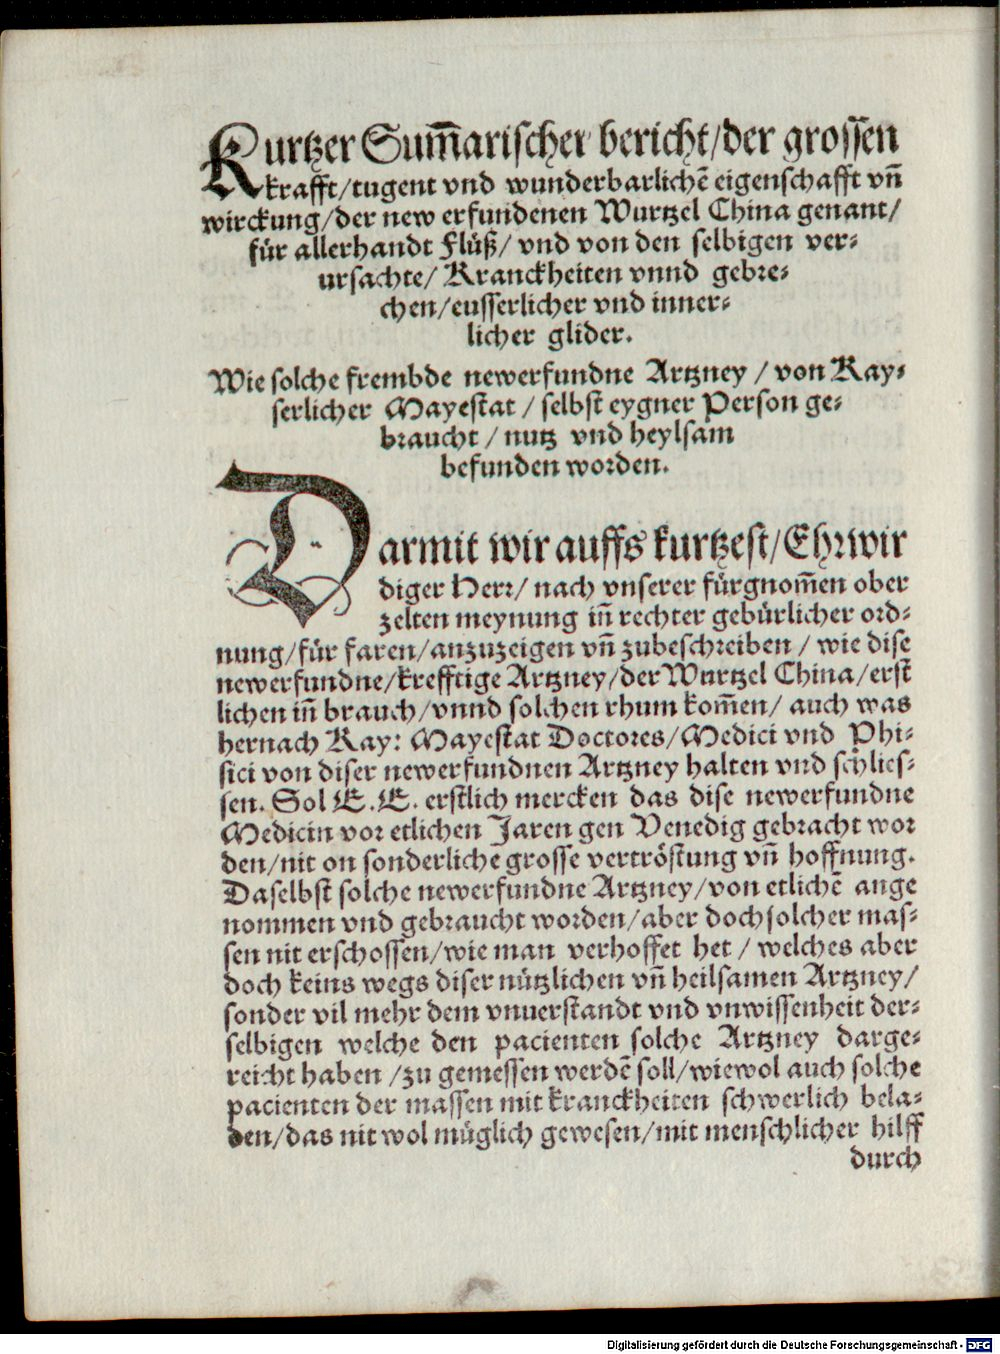 Kurtzer Sum̃arischer bericht/der grossen
krafft/tugent vnd wunderbarlichẽ eigenschafft vñ
wirckung/der new erfundenen Wurtzel China genant/
für allerhandt Flüß/ vnd von den selbigen ver⸗
ursachte/ Kranckheiten vnnd gebre⸗
chen/eusserlicher vnd inner⸗
licher glider.
Wie solche frembde newerfundne Artzney / von Kay⸗
serlicher Mayestat / selbst eygner Person ge⸗
braucht / nutz vnd heylsam
befunden worden.
Darmit wir auffs kurtzest/Ehrwir
diger Herr/ nach vnserer fürgnom̃en ober
zelten meynung iñ rechter gebürlicher ord⸗
nung/für faren/anzuzeigen vñ zubeschreiben / wie dise
newerfundne/krefftige Artzney/der Wurtzel China/erst
lichen iñ brauch/vnnd solchen rhum kom̃en/ auch was
hernach Kay: Mayestat Doctores/Medici vnd Phi⸗
sici von diser newerfundnen Artzney halten vnd schlies⸗
sen. Sol E.E. erstlich mercken das dise newerfundne
Medicin vor etlichen Jaren gen Venedig gebracht wor
den/nit on sonderliche grosse vertröstung vñ hoffnung.
Daselbst solche newerfundne Artzney/von etlichẽ ange
nommen vnd gebraucht worden/aber doch solcher mas⸗
sen nit erschossen/wie man verhoffet het / welches aber
doch keins wegs diser nützlichen vñ heilsamen Artzney/
sonder vil mehr dem vnuerstandt vnd vnwissenheit der⸗
selbigen welche den pacienten solche Artzney darge⸗
reicht haben /zu gemessen werdẽ soll/wiewol auch solche
pacienten der massen mit kranckheiten schwerlich bela⸗
den/das nit wol müglich gewesen/mit menschlicher hilff
durch
Digitalisierung gefördert durch die Deutsche Forschungsgemeinschaft - DFG